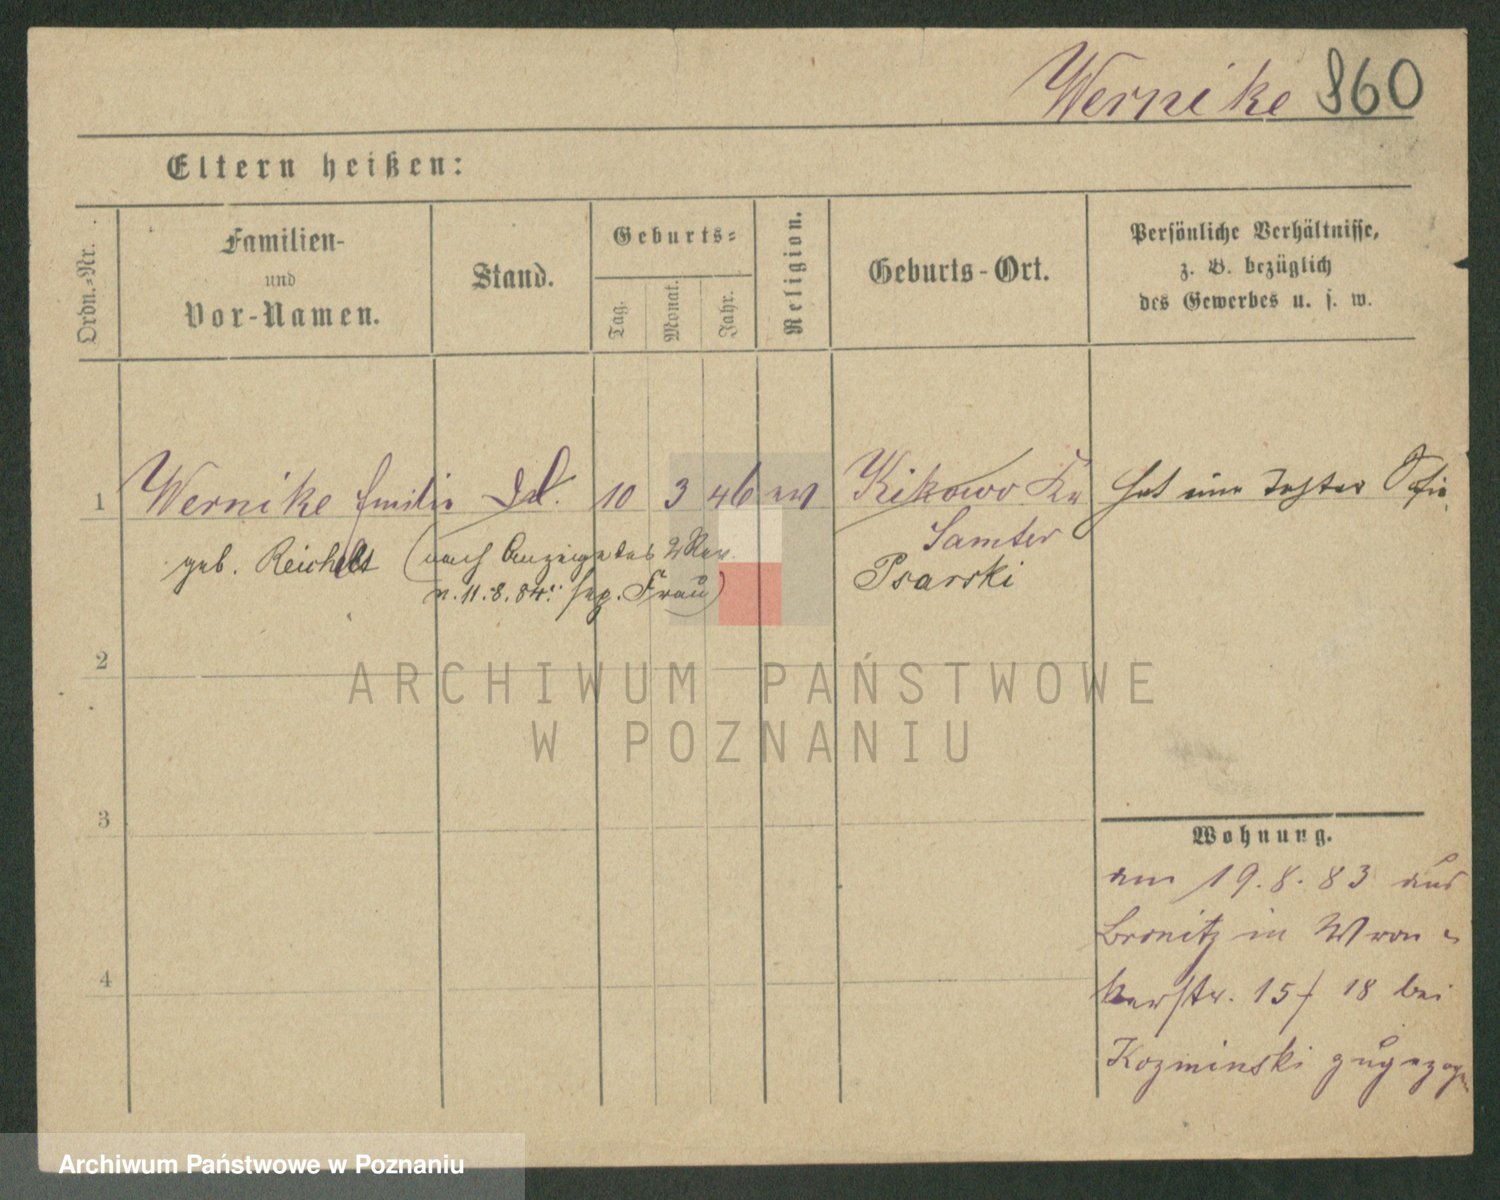 Wernike 860
Eltern heißen:
Ordn.-Nr.
Familien-
und
Vor-Namen.
Stand.
Geburts-
Tag.
Monat.
Jahr.
Religion.
Geburts-Ort.
Persönliche Verhältnisse,
z. B. bezüglich
des Gewerbes u. s. w.
1 Wernike Emilie 10 3 46 ev Kikowo Kr hat eine Tochter
Samter
geb. Reichelt (nach Anzeige des Rev.
v. 11.8.84. sep. Frau)
Psarski
2
3
4
Wohnung.
am 19.8.83 aus
Bronitz in Wron-
kerstr. 15/18 bei
Kozminski zugezogen
ARCHIWUM PAŃSTWOWE
W POZNANIU
Archiwum Państwowe w Poznaniu